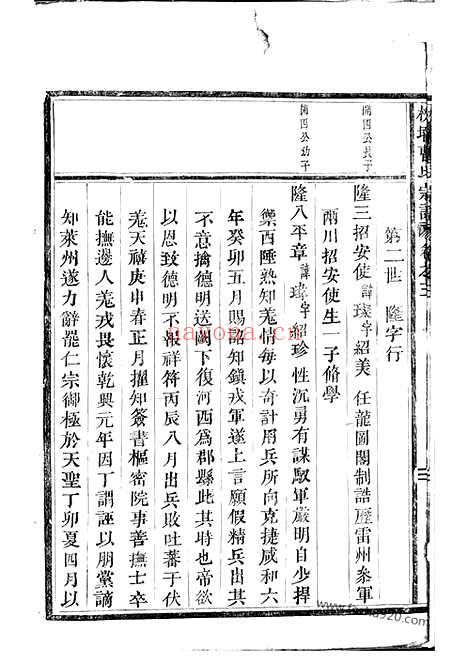 第二世 隆字行
開四公長子
隆三招安使諱璨字紹美 任龍圖閣制誥歷雷州叅軍
兩川招安使生一子脩學
開四公幼子
隆八平章諱瑋字紹珍 性沉勇有謀馭軍嚴明自少捍
禦西陲熟知羗情每以奇計用兵所向克捷咸和六
年癸卯五月賜詔知鎮戎軍遂上言願假精兵出其
不意擒德明送闕下復河西爲郡縣此其時也帝欲
以恩致德明不報祥符丙辰八月出兵敗吐蕃于伏
羗天禧庚申春正月擢知簽書樞密院事善撫士卒
能撫邊人羗戎畏懷乾興元年因丁謂誣以朋黨謫
知萊州遂力辭罷仁宗御極於天聖丁卯夏四月以
nayona.cn